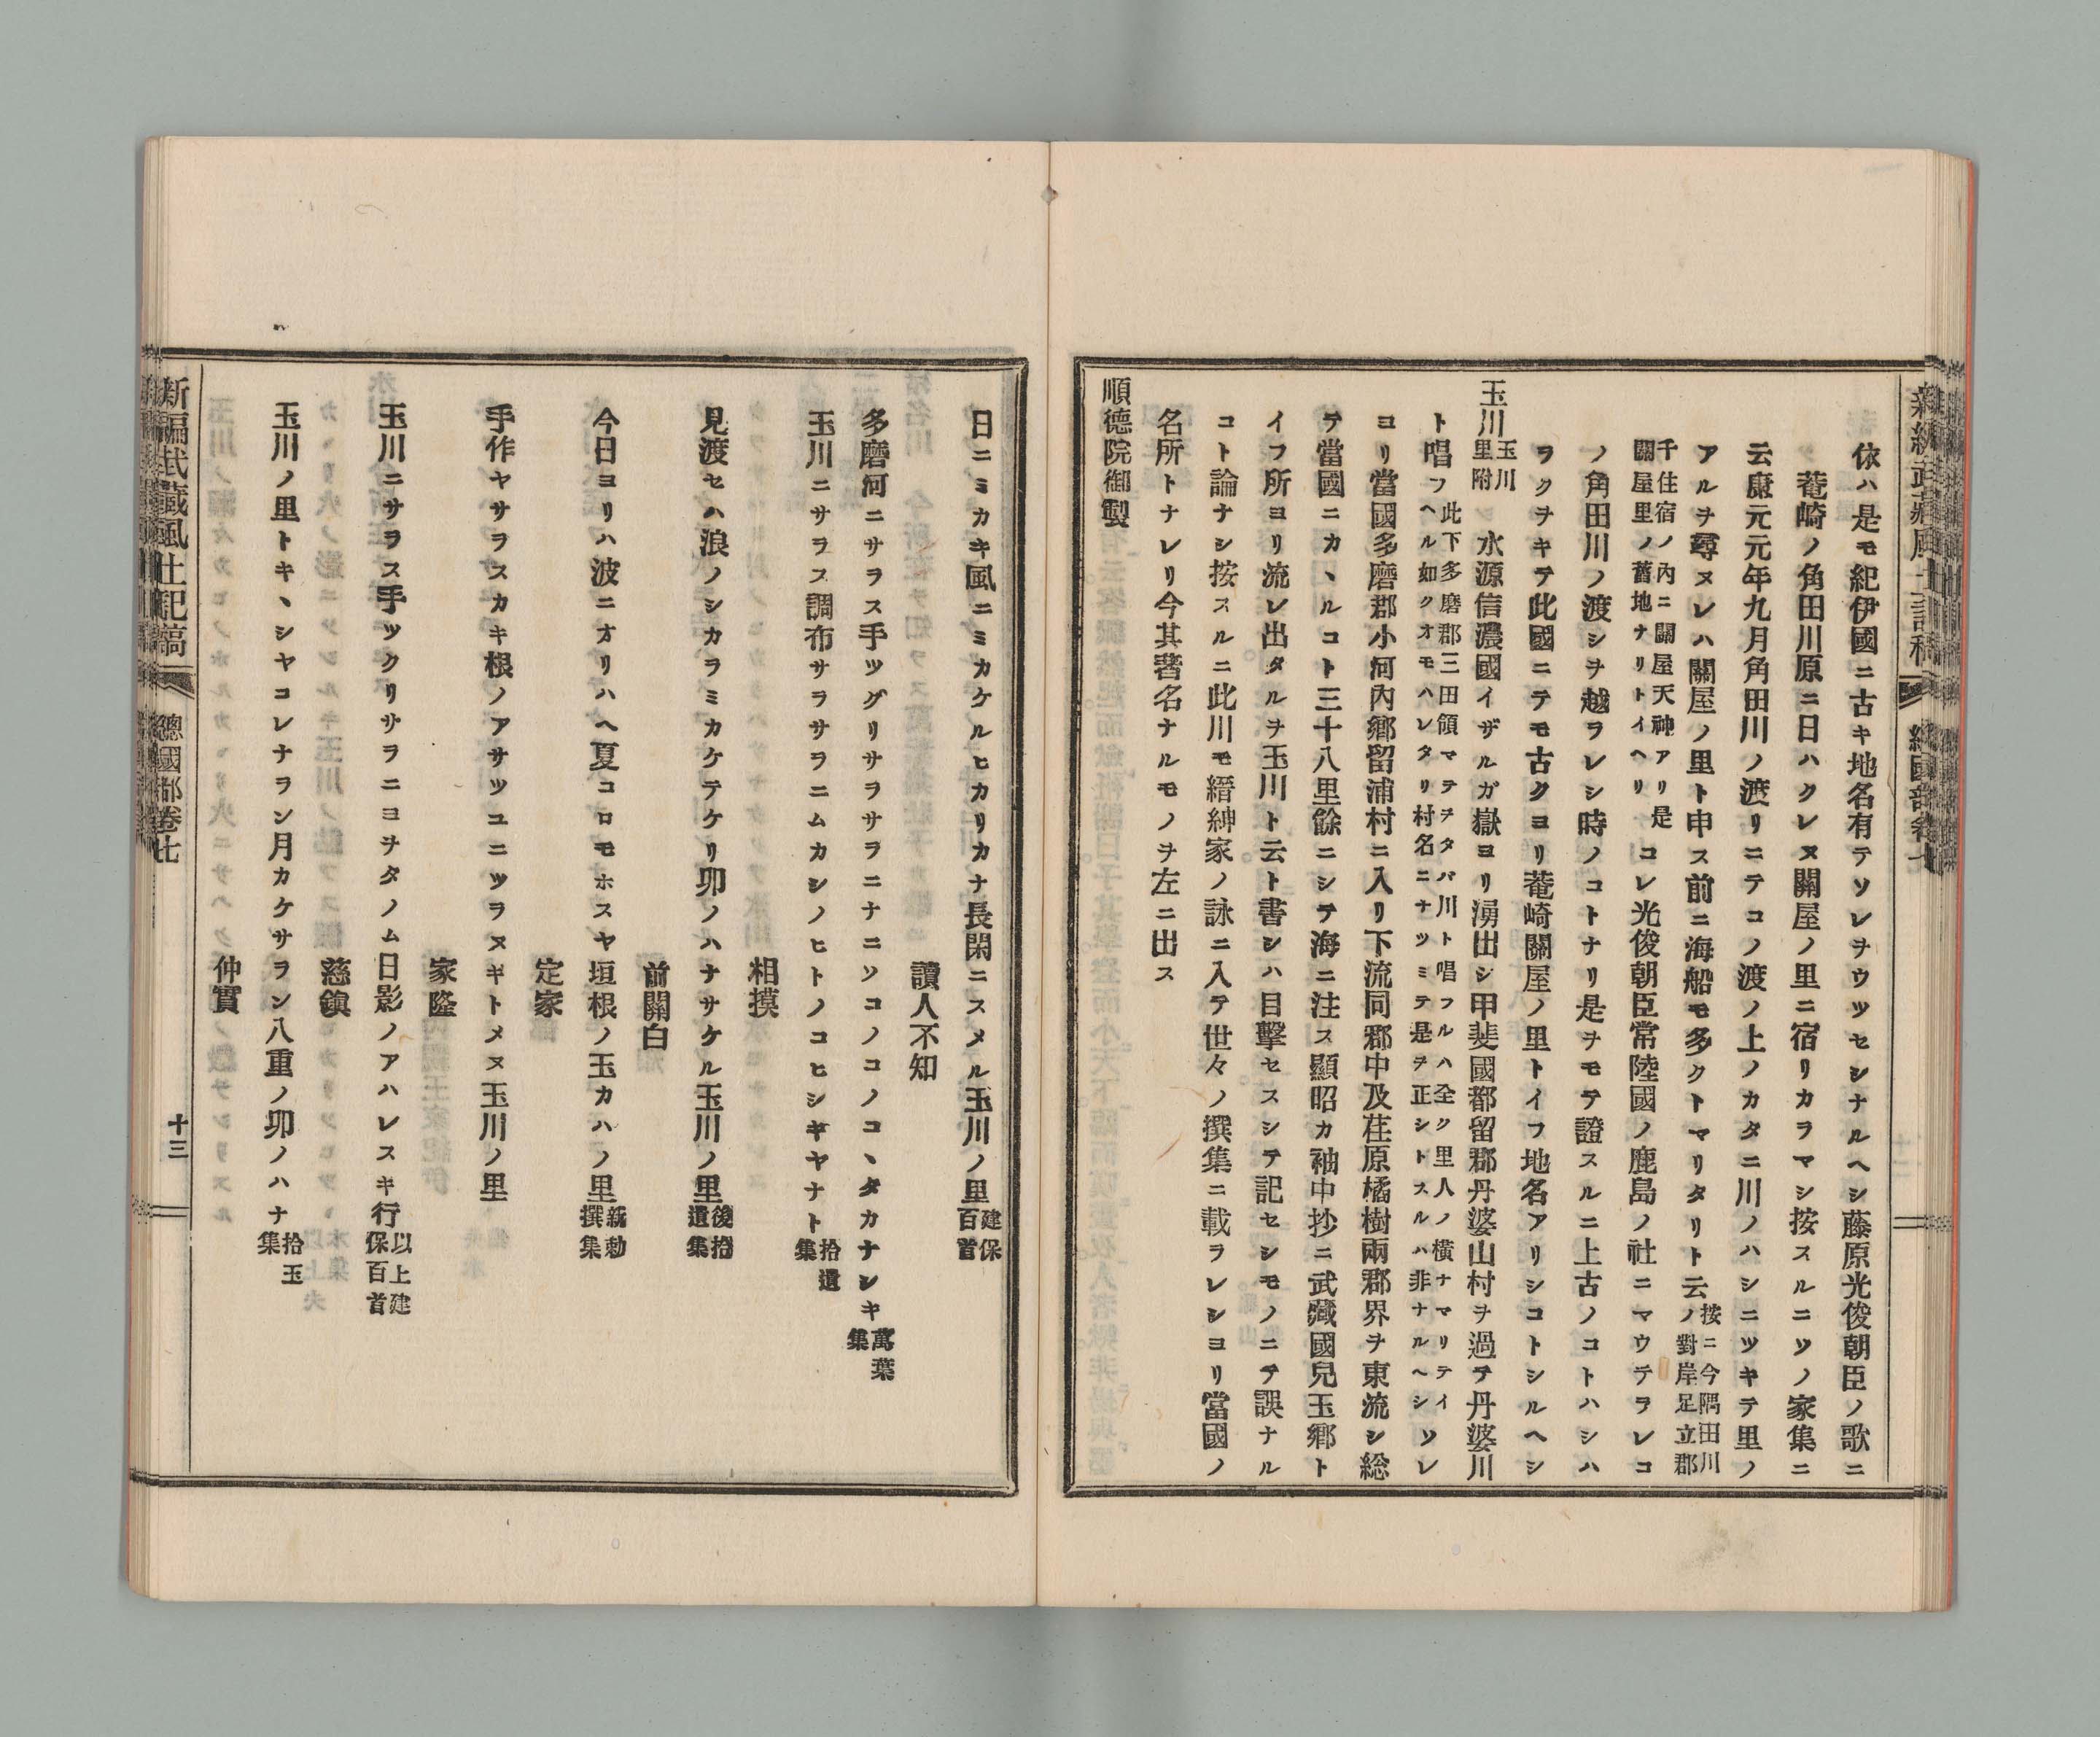 依ハ是モ紀伊國ニ古キ地名有テソレヲウツセシナルヘシ藤原光俊朝臣ノ歌ニ
菴崎ノ角田川原ニ日ハクレヌ關屋ノ里ニ宿リカラマシ按スルニソノ家集ニ
云康元元年九月角田川ノ渡リニテコノ渡ノ上ノカタニ川ノハシニツキテ里ノ
アルヲ尋ヌレハ關屋ノ里ト申ス前ニ海船モ多クトマリタリト云按ニ今隅田川ノ對岸足立郡
千住宿ノ內ニ關屋天神アリ是關屋里ノ舊地ナリトイヘリコレ光俊朝臣常陸國ノ鹿島ノ社ニマウテヲレコ
ノ角田川ノ渡シヲ越ヲレシ時ノコトナリ是ヲモテ證スルニ上古ノコトハシハ
ヲクヲキテ此國ニテモ古クヨリ菴崎關屋ノ里トイフ地名アリシコトシルヘシ
玉川玉川里附 水源信濃國イザルガ嶽ヨリ湧出シ甲斐國都留郡丹婆山村ヲ過テ丹婆川
ト唱フ此下多磨郡三田領マテヲタバ川ト唱フルハ全ク里人ノ橫ナマリテイヘル如クオモハレタリ村名ニナツミテ是ヲ正シトスルハ非ナルヘシソレ
ヨリ當國多磨郡小河內鄕留浦村ニ入リ下流同郡中及荏原橘樹兩郡界ヲ東流シ総
テ當國ニカヽルコト三十八里餘ニシテ海ニ注ス顯昭カ袖中抄ニ武藏國兒玉鄕ト
イフ所ヨリ流レ出タルヲ玉川ト云ト書シハ目擊セスシテ記セシモノニテ誤ナル
コト論ナシ按スルニ此川モ縉紳家ノ詠ニ入テ世々ノ撰集ニ載ヲレシヨリ當國ノ
名所トナレリ今其著名ナルモノヲ左ニ出ス
順德院御製
日ニミカキ風ニミカケルヒカリカナ長閑ニスメル玉川ノ里建保百首
讀人不知
多磨河ニサヲス手ツグリサヲサラニナニソコノコノコヽタカナシキ萬葉集
玉川ニサラス調布サラサヲニムカシノヒトノコヒシキヤナト拾遺集
相摸
見渡セハ浪ノシカラミカケテケリ卯ノハナサケル玉川ノ里後拾遺集
前關白
今日ヨリハ波ニオリハヘ夏コロモホスヤ垣根ノ玉カハノ里新勅撰集
定家
手作ヤサヲスカキ根ノアサツユニツヲヌギトメヌ玉川ノ里
家隆
玉川ニサヲス手ツクリサヲニヨヲタノム日影ノアハレスキ行以上建保百首
慈鎭
玉川ノ里トキヽシヤコレナラン月カケサラン八重ノ卯ノハナ拾玉集
仲實
新編武藏風土記稿 總國部卷七 十三